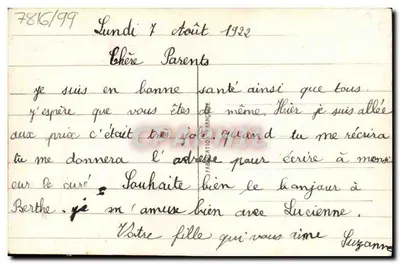 7816/99
Lundi 7 Août 1922
Chère Parents
je suis en bonne santé ainsi que tous.
j'espère que vous êtes de même. Hier je suis allée
aux prix c'était très joli quand tu me récrira
tu me donnera l'adresse pour écrire à mons
eur le curé. Souhaite bien le bonjour à
Berthe. je m'amuse bien avec Lucienne.
Votre fille qui vous aime Suzanne